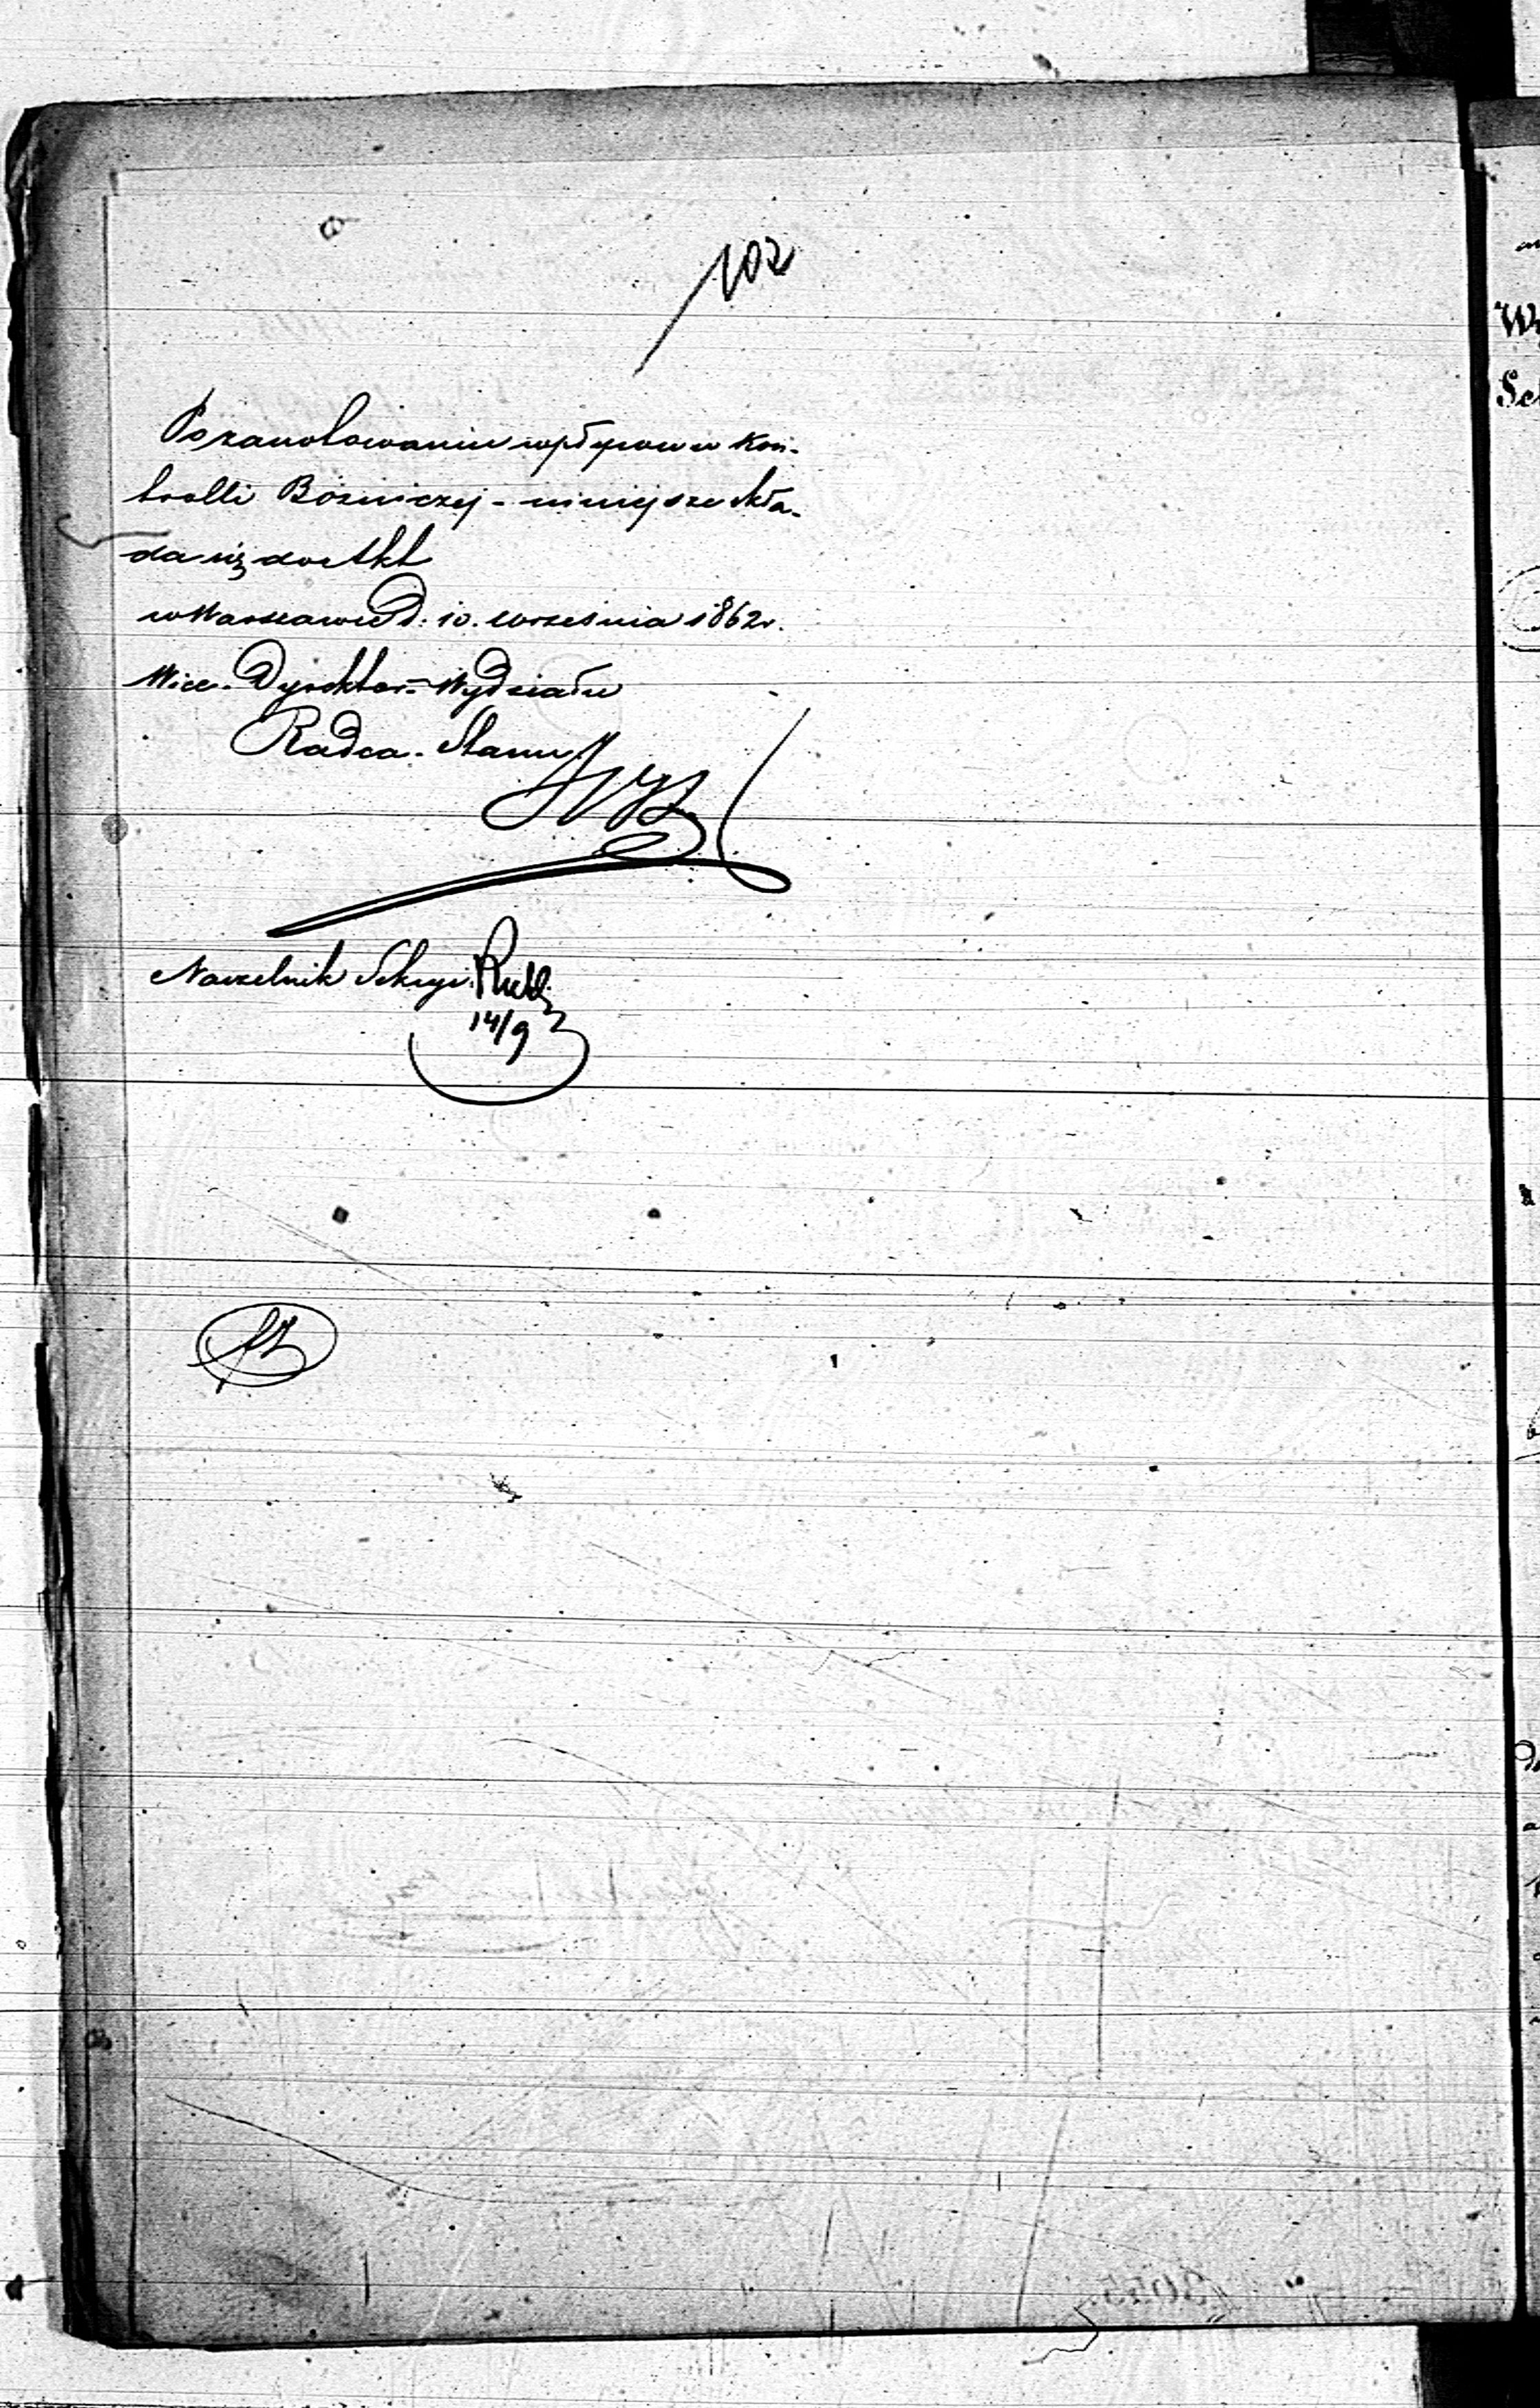 102
Po zanotowaniu wpływu w Kon-
trolli Bóżniczej - niniejsze skła-
da się do akt
w Warszawie d: 10. Września 1862 r.
Wice-Dyrektor Wydziału
Radca Stanu
Naczelnik Sekcyi
14/9